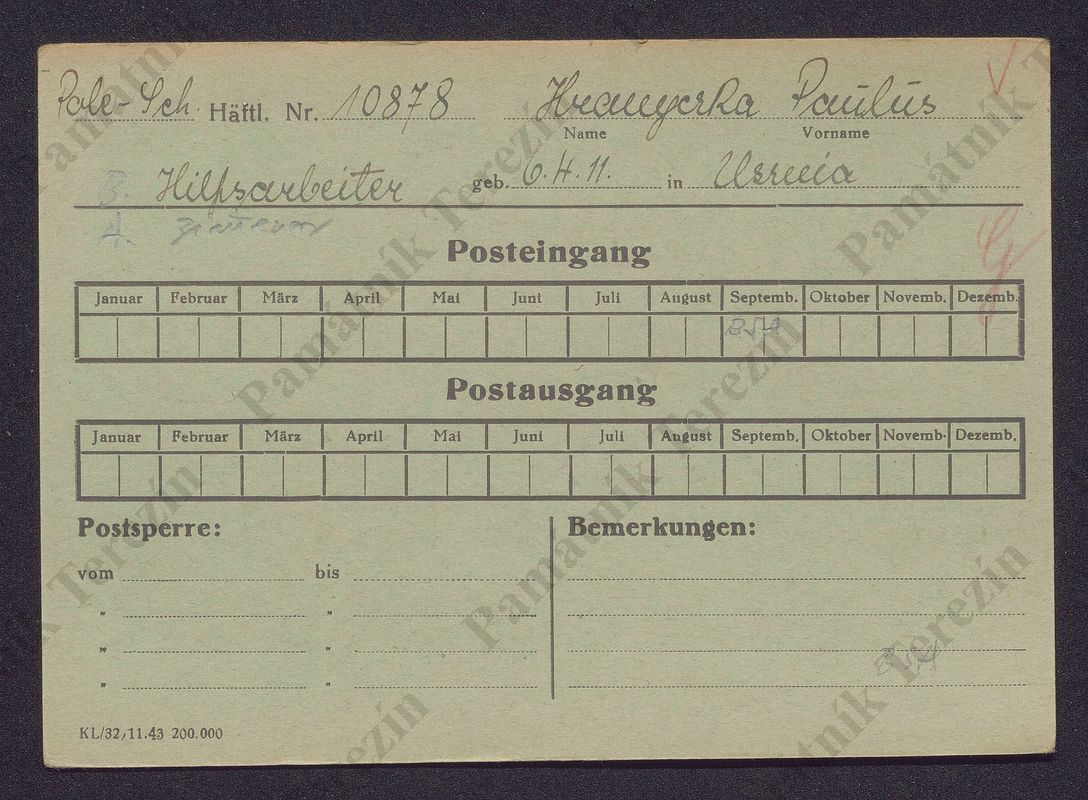 Pole-Sch. Häftl. Nr. 10878 Paulus
Name Vorname
B. Hilfsarbeiter geb. 6.4.11. in
A.
Posteingang
Januar Februar März April Mai Juni Juli August Septemb. Oktober Novemb. Dezemb.
Postausgang
Januar Februar März April Mai Juni Juli August Septemb. Oktober Novemb. Dezemb.
Postsperre: Bemerkungen:
vom bis
" "
" "
" "
KL/32/11.43 200.000
Památník Terezín